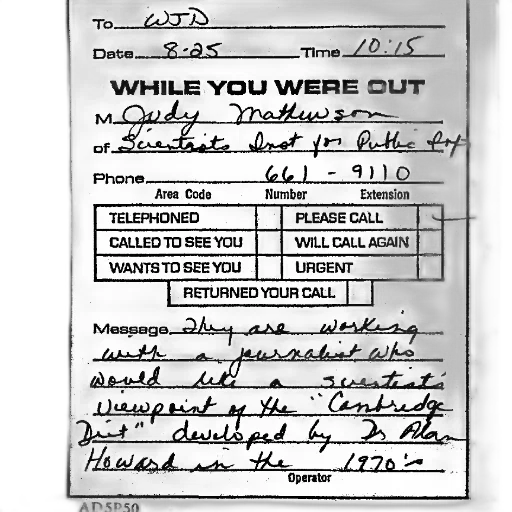 To WJD
Date 8-25 Time 10:15
WHILE YOU WERE OUT
M Judy Mathewson
of Scientists Inst for Public Inf
Phone 661-9110
Area Code Number Extension
TELEPHONED PLEASE CALL
CALLED TO SEE YOU WILL CALL AGAIN
WANTS TO SEE YOU URGENT
RETURNED YOUR CALL
Message They are working
with a journalist who
would like a scientist's
viewpoint of the "Cambridge
Diet" developed by Dr Alan
Howard in the 1970's
Operator
AD5P50